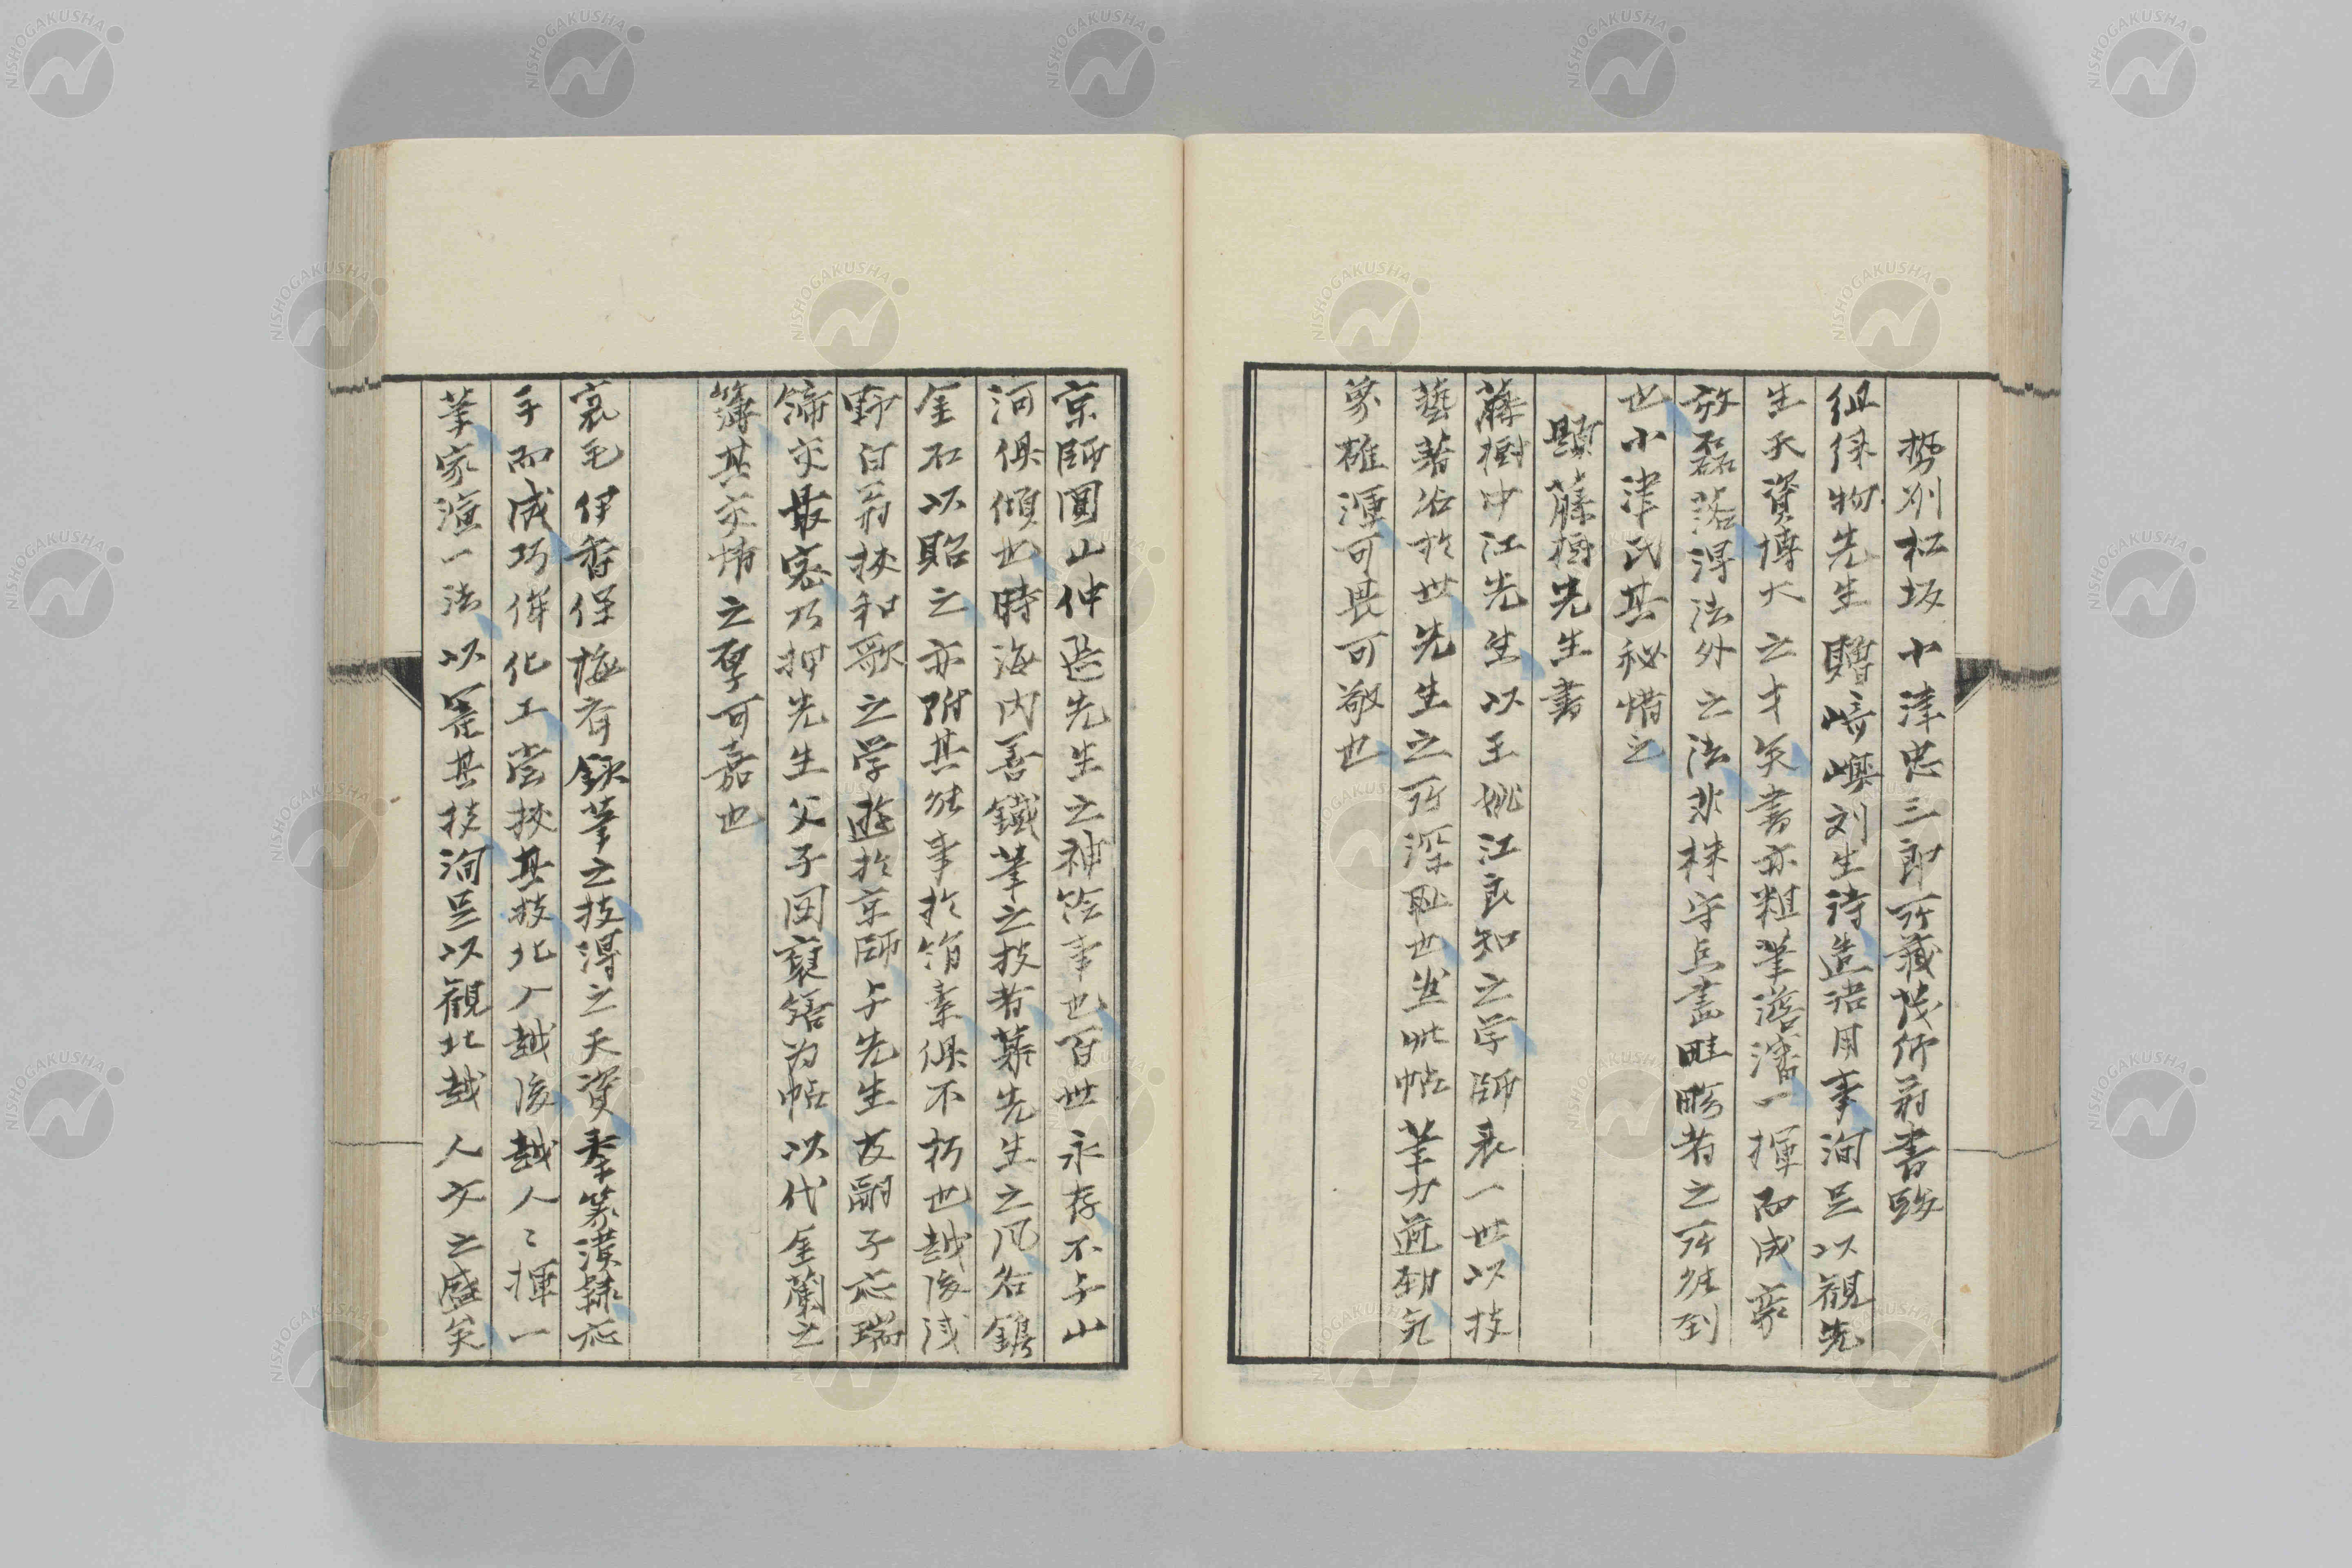 勢州松坂小津忠三郎所蔵茂所翁書跋
徂徠物先生贈﨑嶼刘生詩造語用事洵足以観先
生天資博大之才矣書亦粗筆濃瀋一揮而成豪
放磊落得法外之法非株守点畫畦畛者之所能到
也小津氏其秘惜之
題藤樹先生書
藤樹中江先生以王姚江良知之学師表一世以技
藝著名於世先生之所深耻也然此帖筆力遒勁気
象雄渾可畏可敬也
京師圓山仲選先生之神絵事也百世永存不与山
河俱傾也時海内善鐵筆之技者慕先生之風名鐫
金石以貽之亦附其能事於絹素俱不朽也越後浅
野白翁挾和歌之学遊於京師与先生及嗣子応瑞
締交最密乃押先生父子図章譜為帖以代金蘭之
簿其交情之厚可嘉也
襄毛伊香保梅斎鉄筆之技得之天資奉篆漢隷応
手而成巧侔化工嘗挾其技北入越後越人々揮一
筆家演一法以罷其技洵足以観北越人文之盛矣
NISHOGAKUSHA